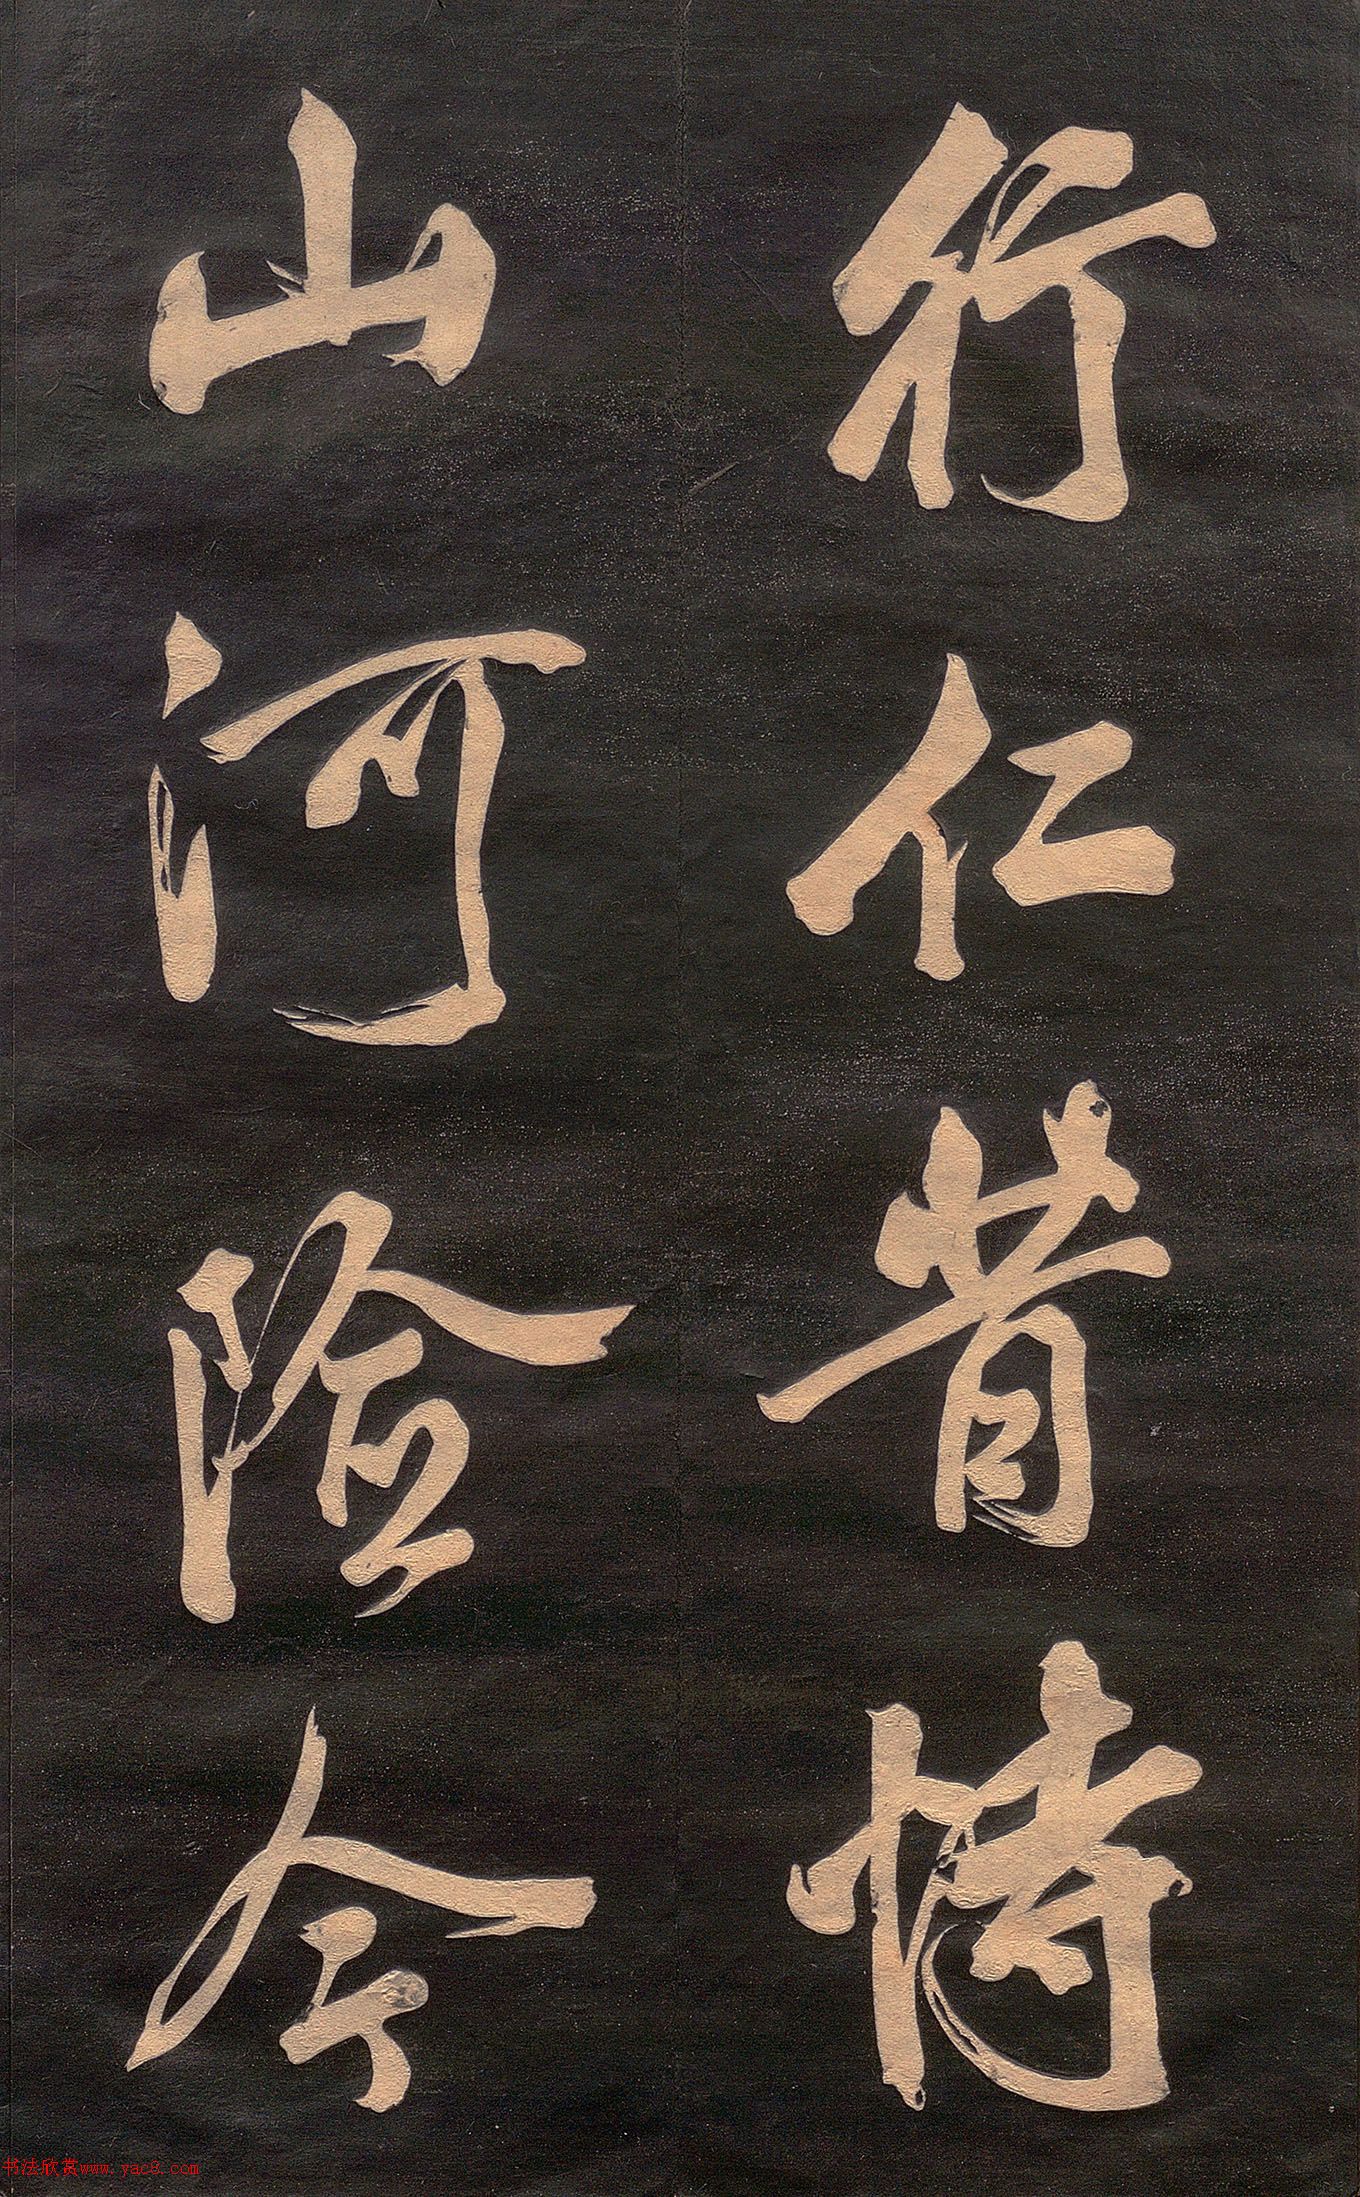 行仁昔恃
山河險今
书法欣赏www.yac8.com